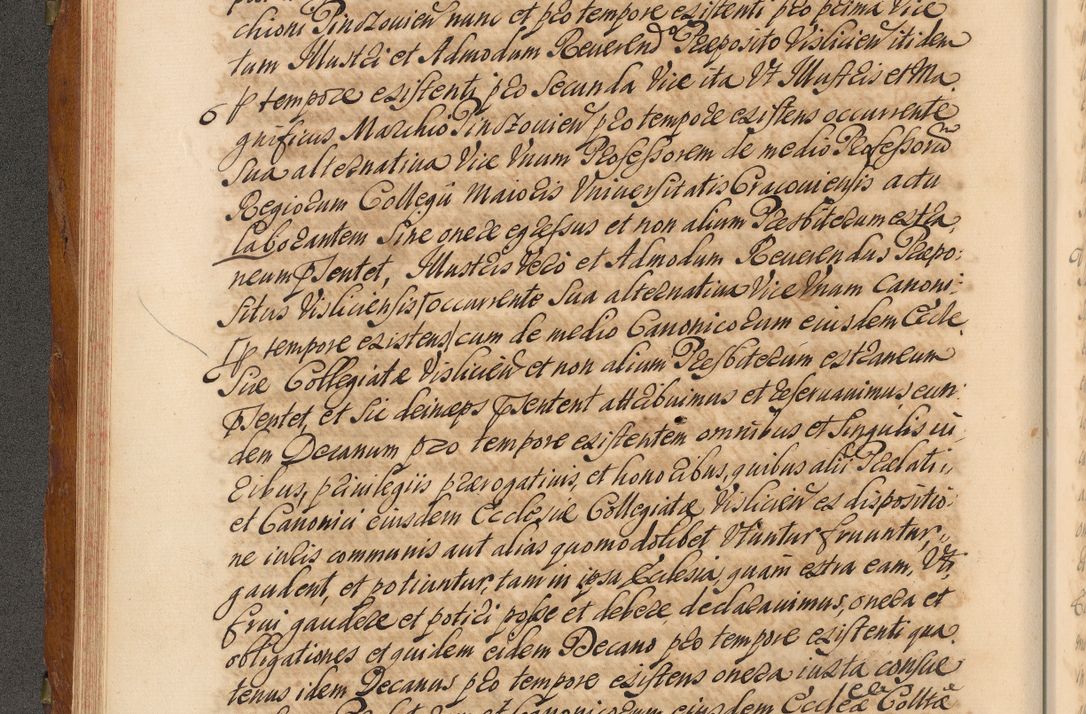 chioni Pinczovien nunc et pro tempore existenti pro prima Vice
tum Illustri et Admodum Reverend Præposito Vislicien itidem
p tempore existenti pro Secunda Vice ita Vt Illustris et Ma
6 gnificus Marchio Pinczovien pro tempore existens occurrente
Sua alternativa Vice Vnum Professorem de medio Professorũ
Regiorum Collegij Maioris Vniversitatis Cracoviensis actu
laborantem Sine onere egressus et non alium Presbiterum extra
neum pñsentet, Illustris Vero et Admodum Reverendus Præpo:
situs Visliciensis occurrente Sua alternativa Vice Vnum Canoni:
p tempore existens cum de medio Canonicorum eiusdem Eccle
siæ Collegiatæ Vislicien et non alium Presbiterum extraneum
pñsentet, et Sic deinceps pñsentent attribuimus et reservavimus, eun:
dem Decanum pro tempore existentem omnibus et Singulis iu
ribus, privilegijs prærogativis, et honoribus, quibus alij Prælati,
et Canonici eiusdem Ecclesiæ Collegiatæ Vislicien ex dispositio:
ne iuris communis aut alias quomodolibet Vtuntur fruuntur,
gaudent, et potiuntur, tam in ipsa Ecclesia, quam extra eam, Vti
frui gaudere et potiri posse et debere declaravimus, onera et
obligationes et quidem eidem Decano pro tempore existenti qua
tenus idem Decanus pro tempore existens onera iuxta consue
et Canonicorum eiusdem Eccleæ Colltæ